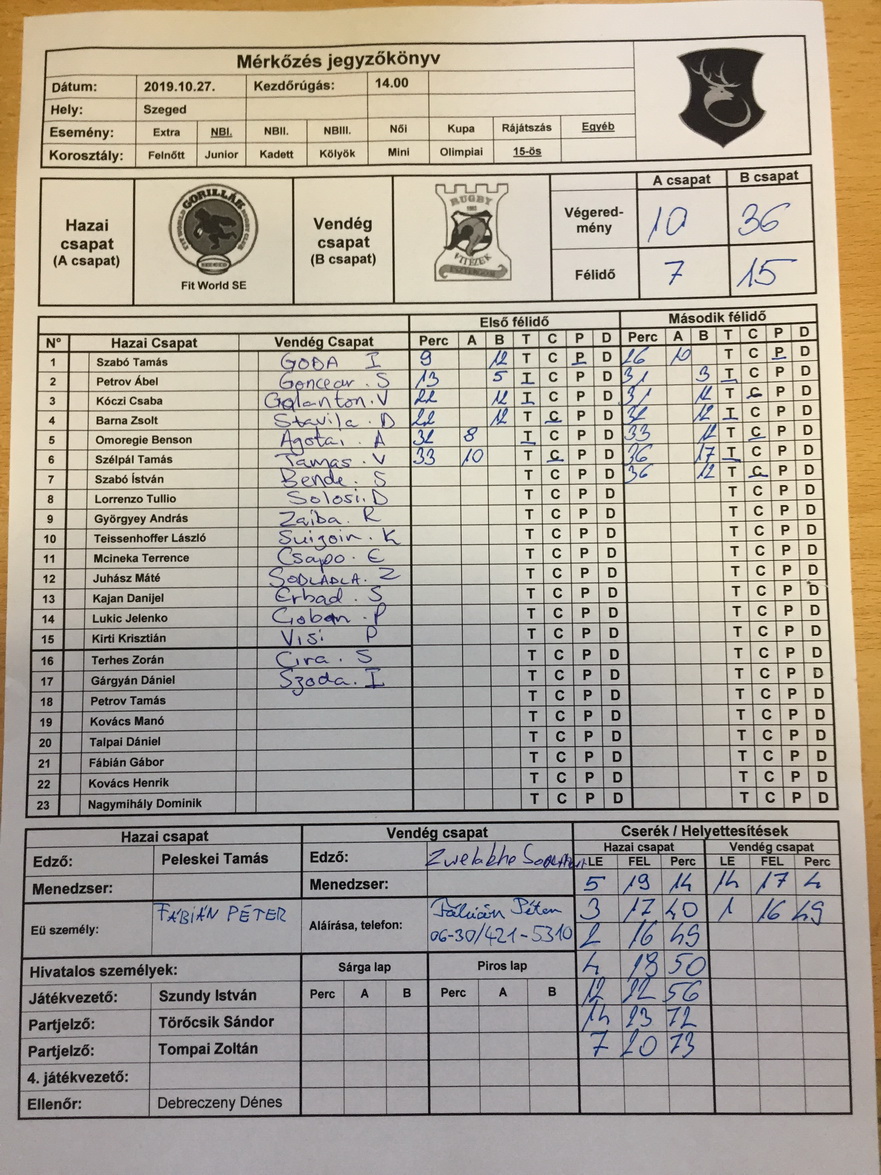 Mérkőzés jegyzőkönyv
Dátum: 2019.10.27. Kezdőrúgás: 14.00
Hely: Szeged
Esemény: Extra NBI. NBII. NBIII. Női Kupa Rájátszás Egyéb
Korosztály: Felnőtt Junior Kadett Kölyök Mini Olimpiai 15-ös
A csapat B csapat
Hazai csapat (A csapat) GORILLÁK Fit World SE Vendég csapat (B csapat) RUGBY VITÉZEK ESZTERGOM Végered-mény 10 36
Félidő 7 15
Első félidő Második félidő
N° Hazai Csapat Vendég Csapat Perc A B T C P D Perc A B T C P D
1 Szabó Tamás GODA I 9 12 T C P D 26 10 T C P D
2 Petrov Ábel Goncear . S 13 5 T C P D 31 3 T C P D
3 Kóczi Csaba Galanton . V 22 12 T C P D 31 12 T C P D
4 Barna Zsolt Stavila . D 22 12 T C P D 32 12 T C P D
5 Omoregie Benson Agotai . A 32 8 T C P D 33 12 T C P D
6 Szélpál Tamás Tamas . V 33 10 T C P D 36 17 T C P D
7 Szabó István Bende . S T C P D 36 12 T C P D
8 Lorrenzo Tullio Solosi . D T C P D T C P D
9 Györgyey András Zaiba . R T C P D T C P D
10 Teissenhoffer László K T C P D T C P D
11 Mcineka Terrence Csapo . E T C P D T C P D
12 Juhász Máté Z T C P D T C P D
13 Kajan Danijel Erbad . S T C P D T C P D
14 Lukic Jelenko Coban . P T C P D T C P D
15 Kirti Krisztián Visi P T C P D T C P D
16 Terhes Zorán Cira . S T C P D T C P D
17 Gárgyán Dániel Szoda . I T C P D T C P D
18 Petrov Tamás T C P D T C P D
19 Kovács Manó T C P D T C P D
20 Talpai Dániel T C P D T C P D
21 Fábián Gábor T C P D T C P D
22 Kovács Henrik T C P D T C P D
23 Nagymihály Dominik T C P D T C P D
Hazai csapat Vendég csapat Cserék / Helyettesítések
Hazai csapat Vendég csapat
Edző: Peleskei Tamás Edző: LE FEL Perc LE FEL Perc
Menedzser: Menedzser: 5 19 14 14 17 4
Eü személy: FÁBIÁN PÉTER Aláírása, telefon: Fábián Péter 3 17 40 1 16 49
06-30/421-5310 2 16 49
Hivatalos személyek: Sárga lap Piros lap 4 18 50
Játékvezető: Szundy István Perc A B Perc A B 12 22 56
Partjelző: Törőcsik Sándor 14 23 72
Partjelző: Tompai Zoltán 7 20 73
4. játékvezető:
Ellenőr: Debreczeny Dénes